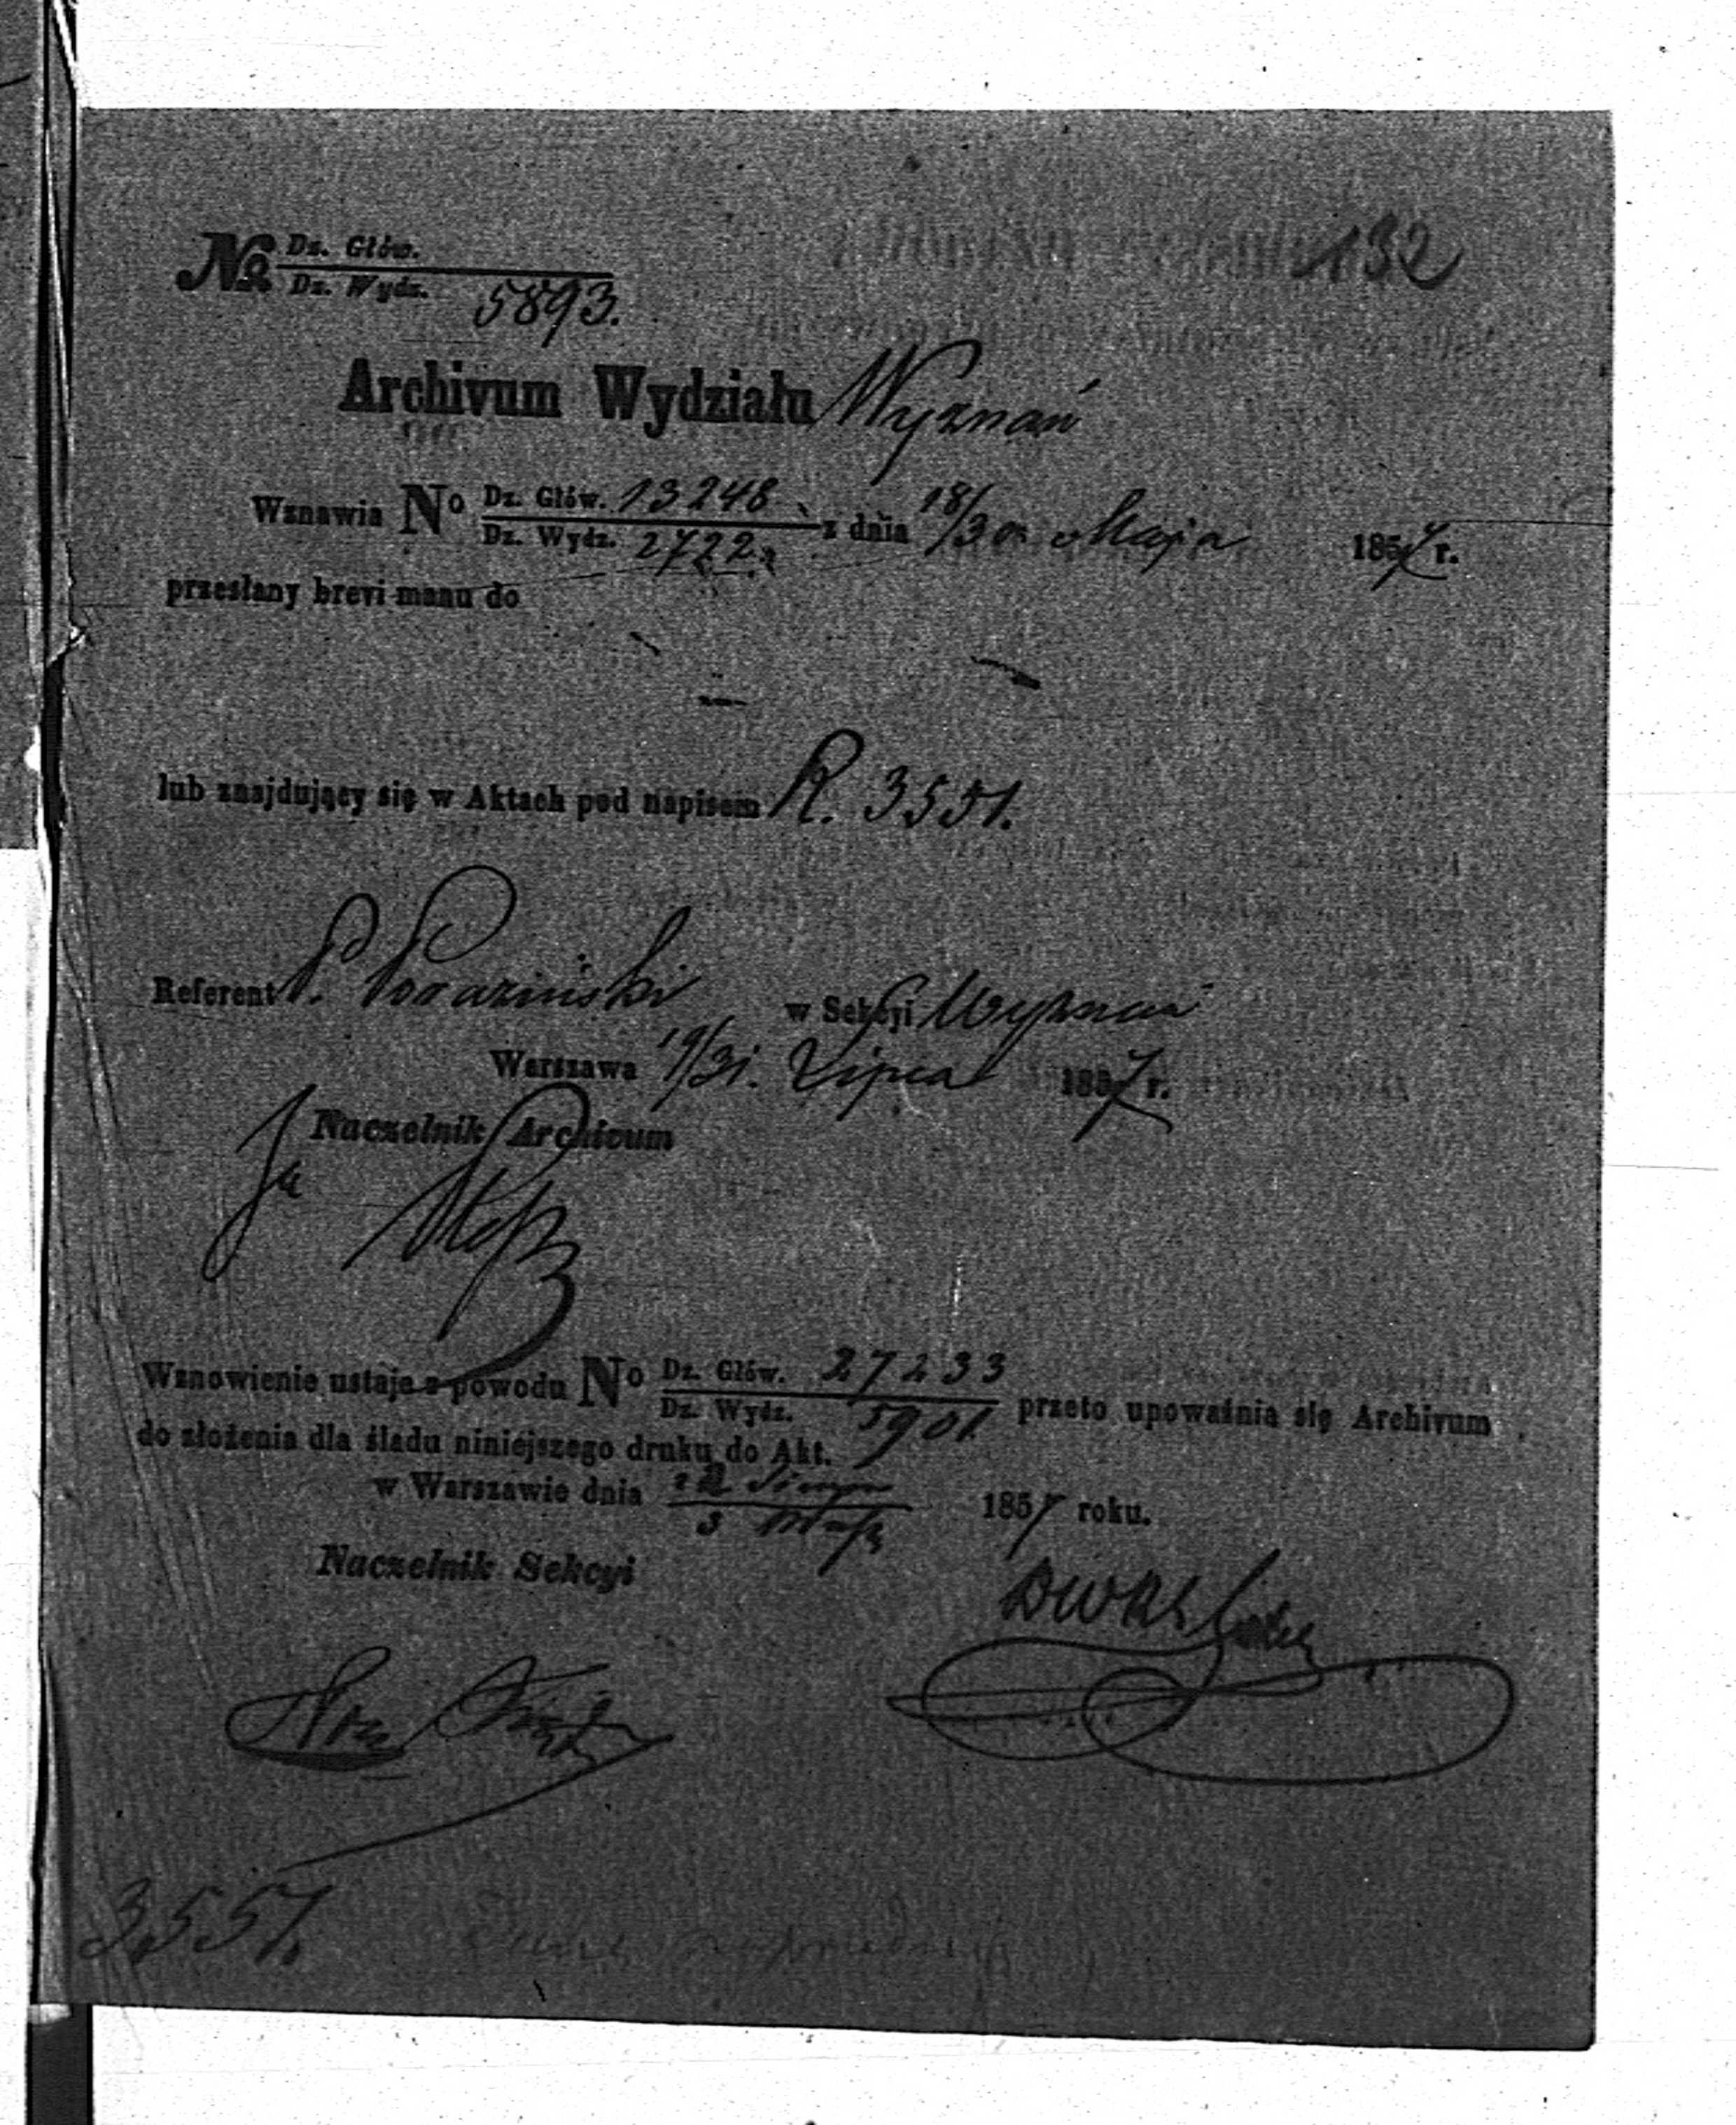 132
№ Dz. Głów.
Dz. Wydz. 5893.
Archivum Wydziału Wyznań
Wznawia No Dz. Głów. 13248 z dnia 18/30 Maja 1857 r.
Dz. Wydz. 2722
przesłany brevi manu do
lub znajdujący się w Aktach pod napisem R. 3551.
Referent P. w Sekcyi Wyznań
Warszawa 19/31. Lipca 1857 r.
Naczelnik Archivum
Wznowienie ustaje z powodu No Dz. Głów. 27233 przeto upoważnia się Archivum
Dz. Wydz. 5901
do złożenia dla śladu niniejszego druku do Akt.
w Warszawie dnia 1857 roku.
Naczelnik Sekcyi
3551.